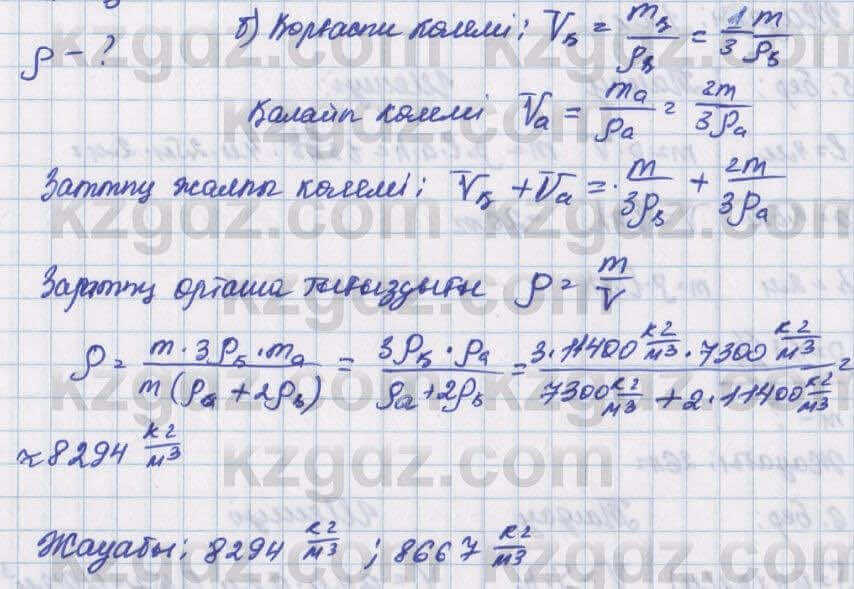 ρ – ?
б) Қорғасын көлемі: Vқ = mқ/ρқ = 1/3 m/ρқ
Қалайы көлемі Vа = mа/ρа = 2m/3ρа
Заттың жалпы көлемі: Vқ + Vа = m/3ρқ + 2m/3ρа
Заттың орташа тығыздығы ρ = m/V
ρ = m · 3ρқ · mа / m(ρа + 2ρқ) = 3ρқ · ρа / ρа + 2ρқ = 3 · 11400 кг/м3 · 7300 кг/м3 / 7300 кг/м3 + 2 · 11400 кг/м3 =
≈ 8294 кг/м3
Жауабы: 8294 кг/м3 ; 8667 кг/м3
kzgdz.com